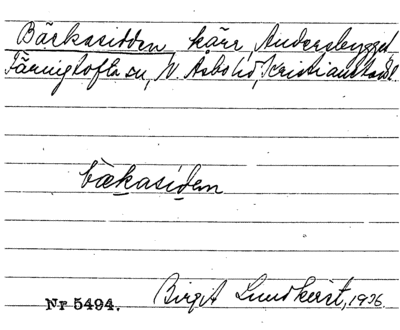 Bärkasidden, kärr, Andersbygget,
Färingtofta sn, N. Åsbo hd, Kristianstads l.
bækasiden
Nr 5494. Birgit Lundkvist, 1936.